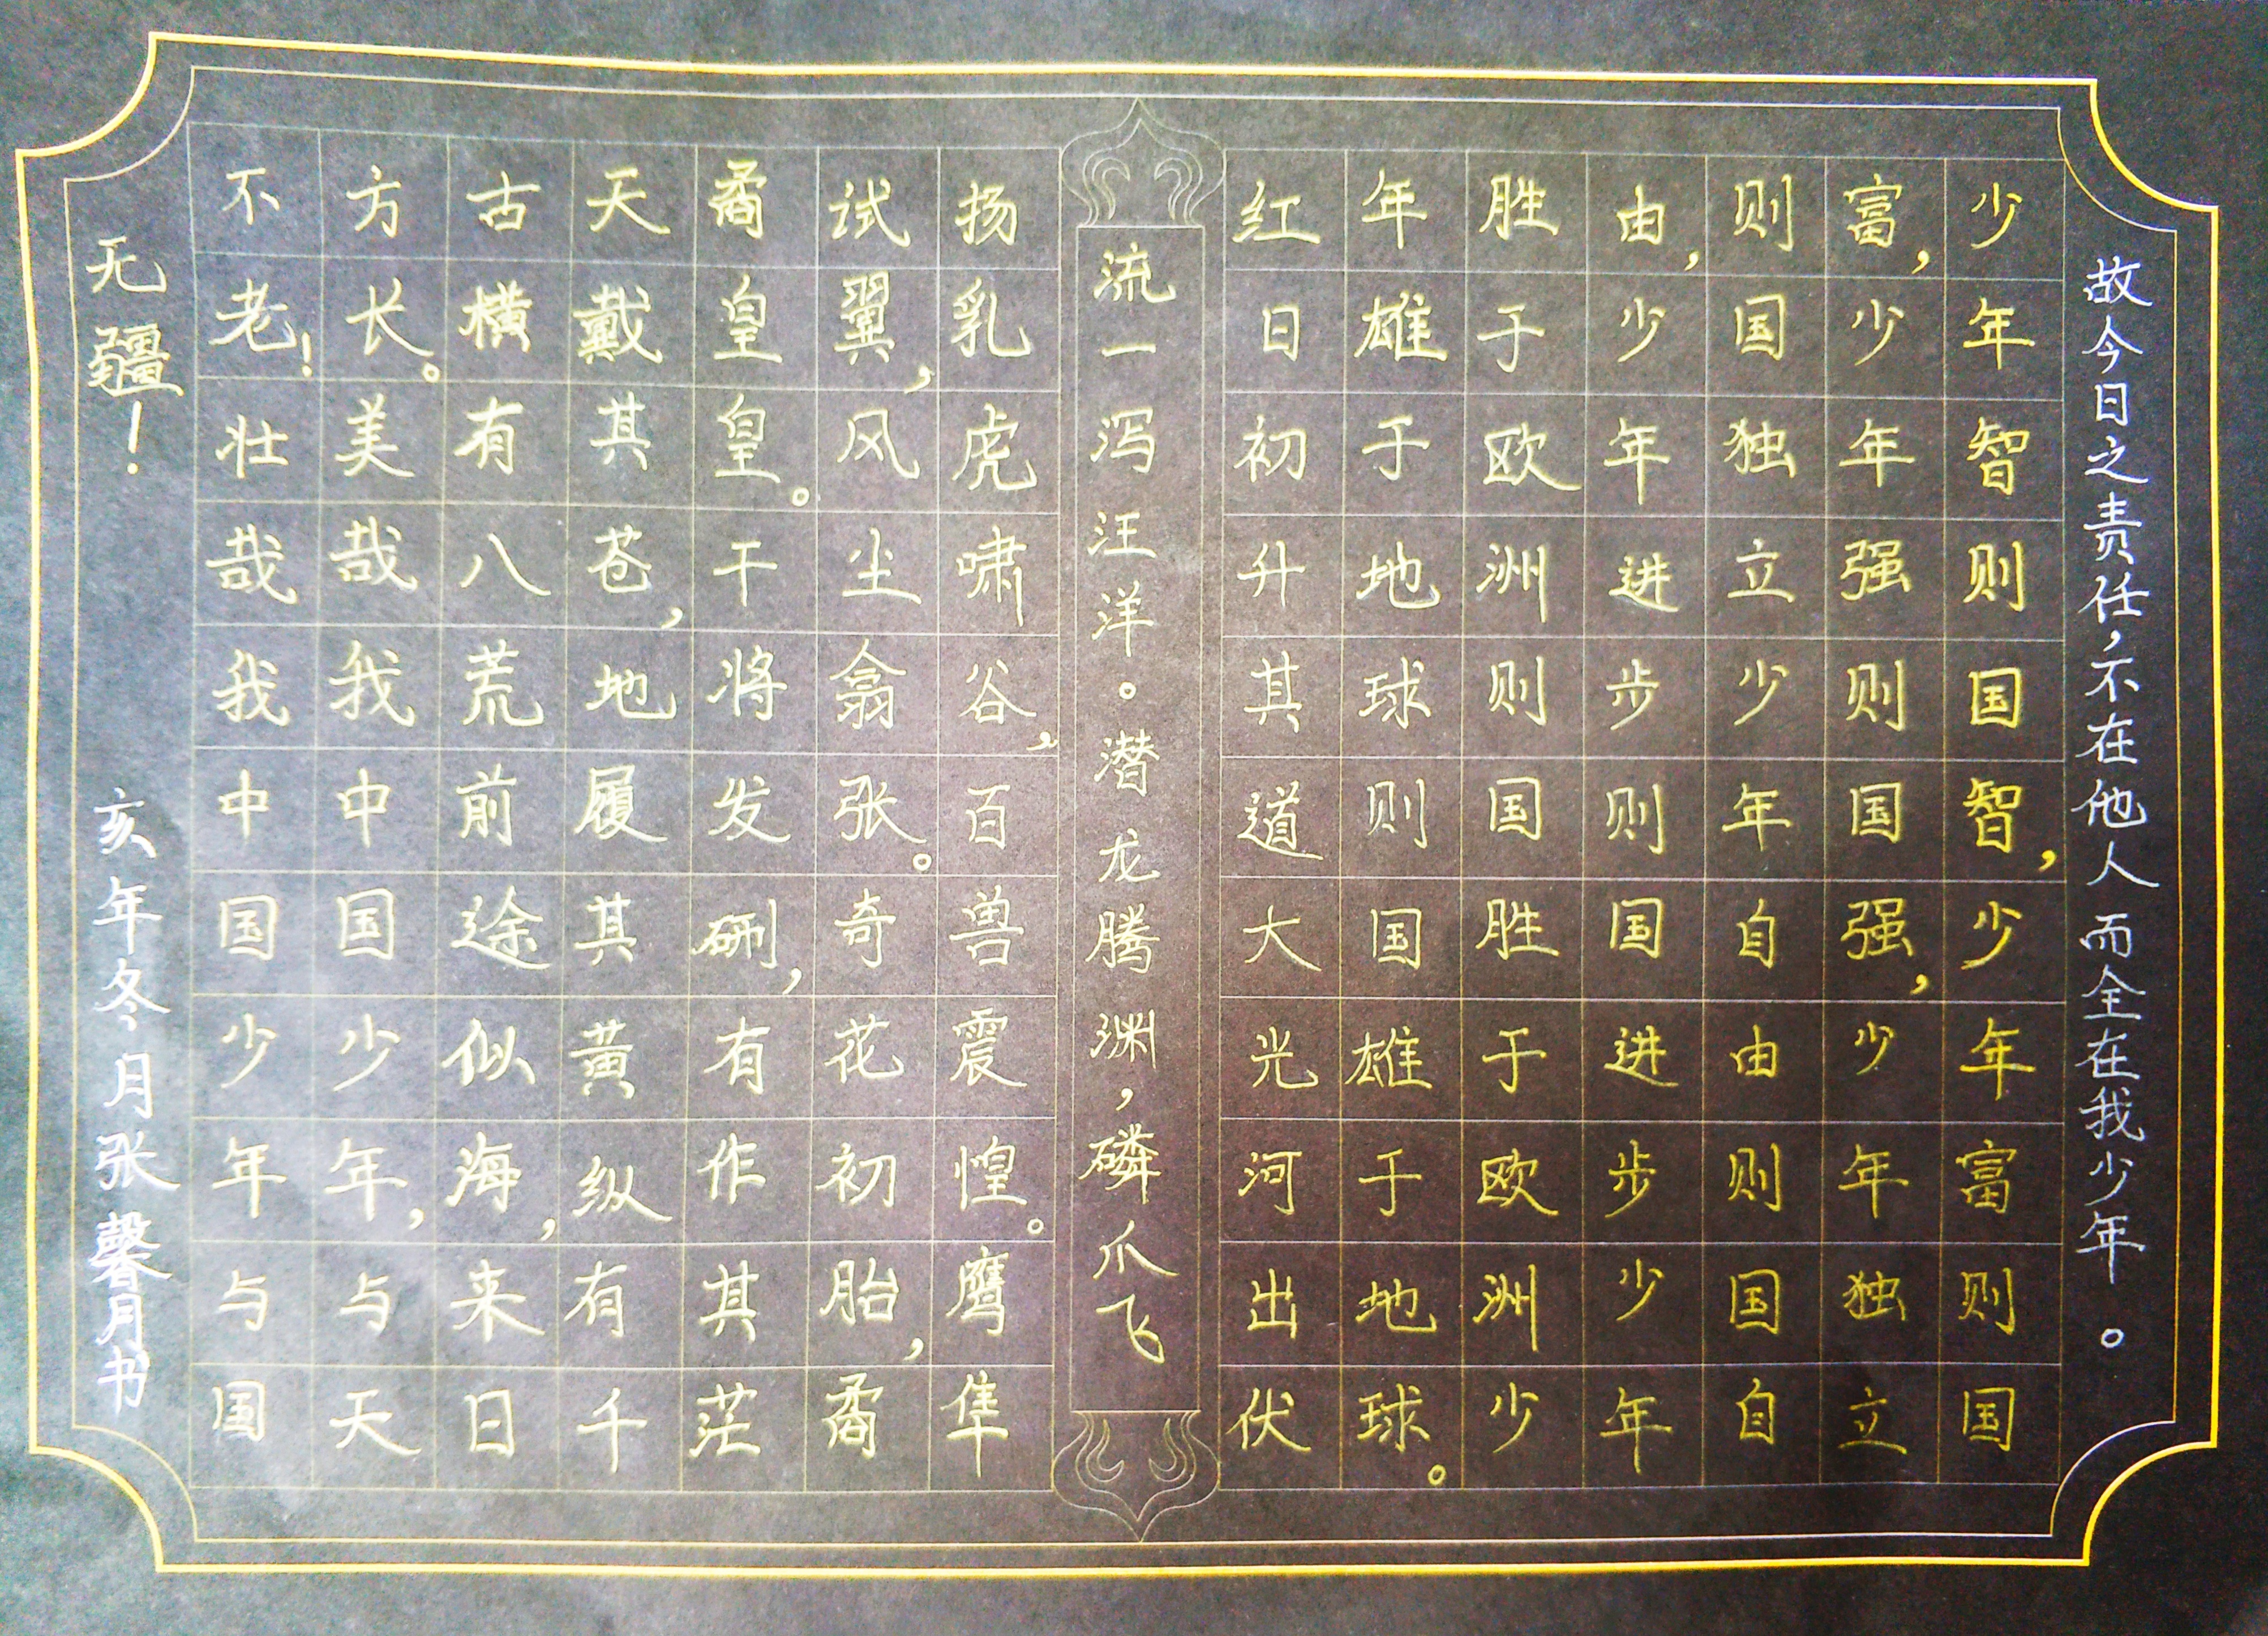 故今日之责任,不在他人而全在我少年。
少年智则国智,少年富则国
富,少年强则国强,少年独立
则国独立少年自由则国自
由,少年进步则国进步少年
胜于欧洲则国胜于欧洲少
年雄于地球则国雄于地球。
红日初升其道大光河出伏
流一泻汪洋。潜龙腾渊,磷爪飞
扬乳虎啸谷,百兽震惶。鹰隼
试翼,风尘翕张。奇花初胎,矞
矞皇皇。干将发硎,有作其茫
天戴其苍,地履其黄纵有千
古横有八荒前途似海,来日
方长。美哉我中国少年,与天
不老!壮哉我中国少年与国
无疆!
亥年冬月张馨月书